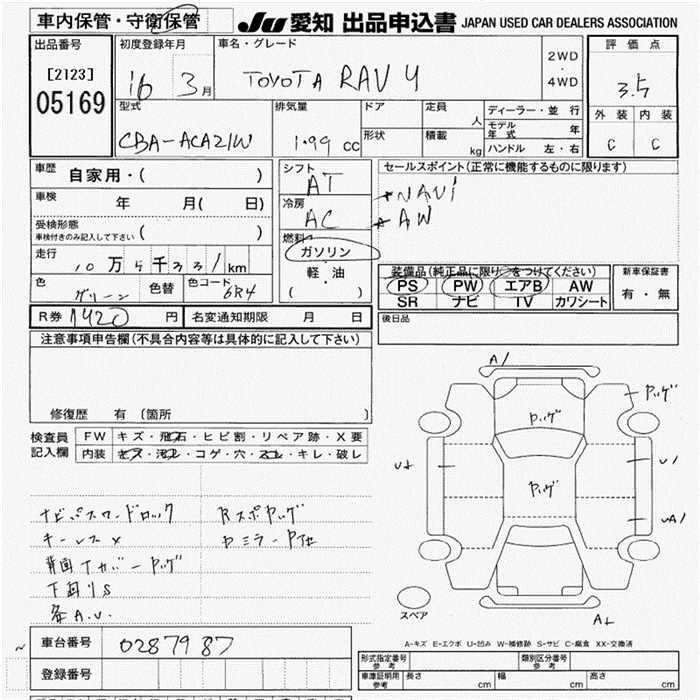 車内保管・守衛保管
JU 愛知 出品申込書 JAPAN USED CAR DEALERS ASSOCIATION
出品番号
[2123]
05169
初度登録年月
16 3月
車名・グレード
TOYOTA RAV4
2WD
・
4WD
評価点
3.5
外装 内装
C C
型式
CBA-ACA21W
排気量
1.99 cc
ドア
形状
定員
人
積載
kg
ディーラー・並行
モデル年式 年
ハンドル 左・右
車歴
自家用・( )
車検
年 月( 日)
受検形態
(車検付きのみ記入して下さい)
走行
10万5千331km
色
グリーン
色替
色コード
6R4
R券 1420 円
名変通知期限 月 日
シフト
AT
冷房
AC
燃料
ガソリン
・
軽・油
( )
セールスポイント(正常に機能するものに限ります)
NAVi
AW
装備品(純正品に限り○をつけてください)
PS PW エアB AW
SR ナビ TV カワシート
新車保証書
有・無
後日品
注意事項申告欄(不具合内容等は具体的に記入して下さい)
修復歴 有 (箇所 )
検査員
記入欄
FW キズ・飛石・ヒビ割・リペア跡・X要
内装 キズ・汚レ・コゲ・穴・スレ・キレ・破レ
ナビパスワードロック
キーレスX
背面Tカバーヤッゲ
下回りS
Rスポヤッゲ
A1
ヤッゲ
ヤッゲ
ヤッゲ
U1
UA1
スペア
A-キズ E-エクボ U-凹み W-補修跡 S-サビ C-腐食 XX-交換済
車台番号
0287987
登録番号
形式指定番号
参考
類別区分番号
参考
車庫証明用
参考
長さ cm
幅 cm
高さ cm